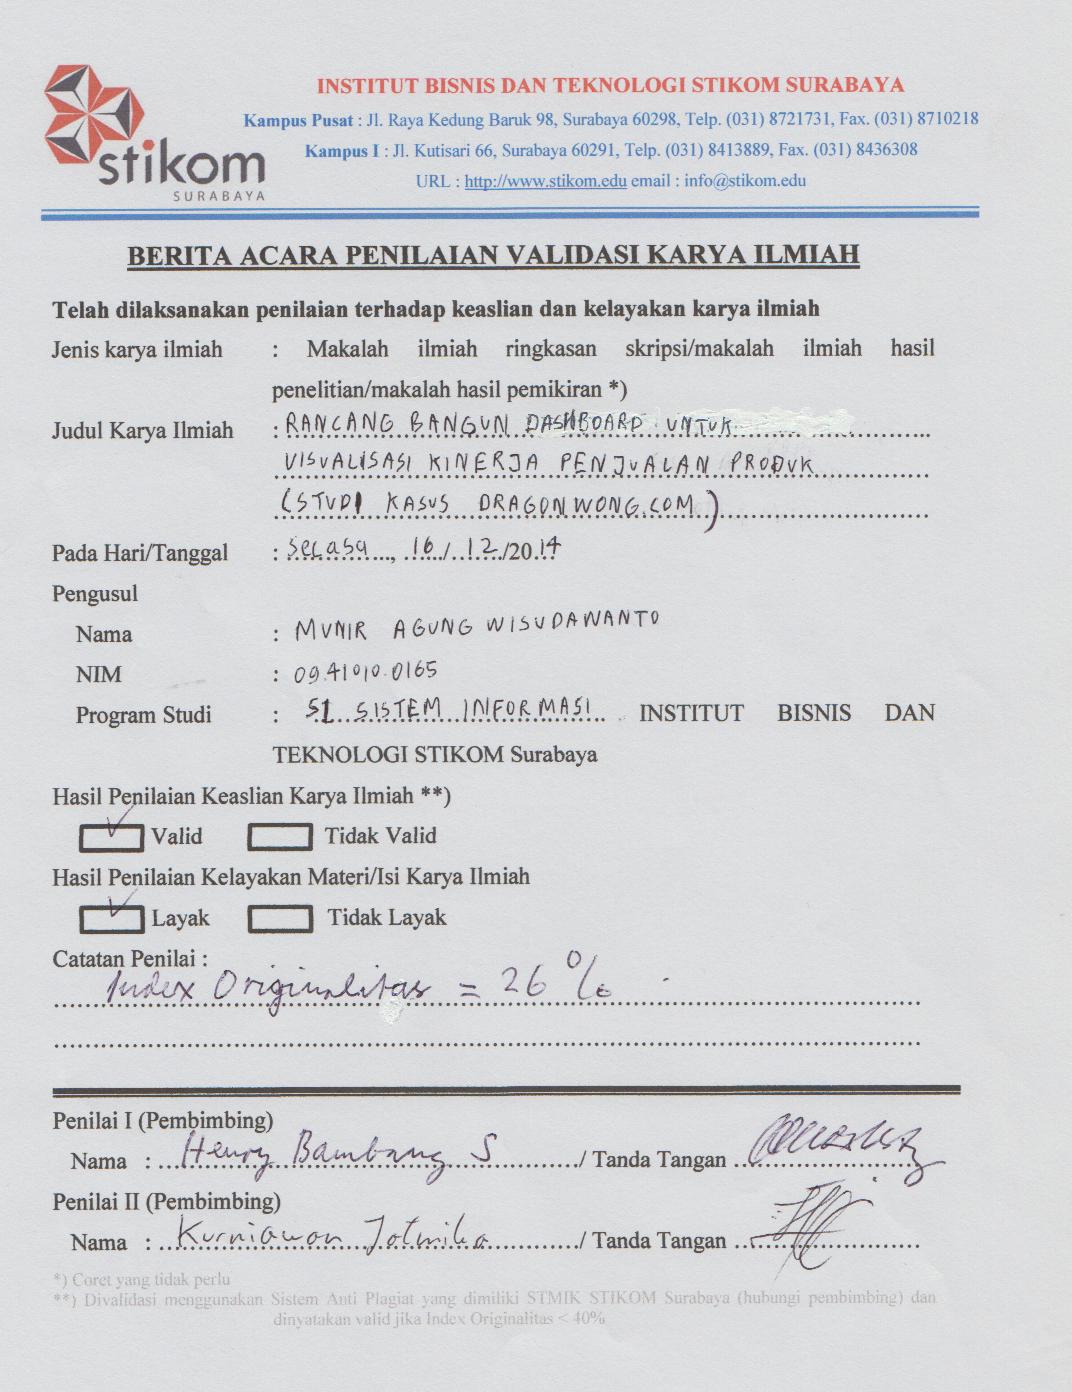 stikom
SURABAYA
INSTITUT BISNIS DAN TEKNOLOGI STIKOM SURABAYA
Kampus Pusat : Jl. Raya Kedung Baruk 98, Surabaya 60298, Telp. (031) 8721731, Fax. (031) 8710218
Kampus I : Jl. Kutisari 66, Surabaya 60291, Telp. (031) 8413889, Fax. (031) 8436308
URL : http://www.stikom.edu email : info@stikom.edu
BERITA ACARA PENILAIAN VALIDASI KARYA ILMIAH
Telah dilaksanakan penilaian terhadap keaslian dan kelayakan karya ilmiah
Jenis karya ilmiah : Makalah ilmiah ringkasan skripsi/makalah ilmiah hasil
penelitian/makalah hasil pemikiran *)
Judul Karya Ilmiah : RANCANG BANGUN DASHBOARD UNTUK
VISUALISASI KINERJA PENJUALAN PRODUK
(STUDI KASUS DRAGONWONG.COM)
Pada Hari/Tanggal : Selasa, 16/12/2014
Pengusul
Nama : MUNIR AGUNG WISUDAWANTO
NIM : 09.41010.0165
Program Studi : S1 SISTEM INFORMASI INSTITUT BISNIS DAN
TEKNOLOGI STIKOM Surabaya
Hasil Penilaian Keaslian Karya Ilmiah **)
✓ Valid Tidak Valid
Hasil Penilaian Kelayakan Materi/Isi Karya Ilmiah
✓ Layak Tidak Layak
Catatan Penilai :
Index Originalitas = 26 %
Penilai I (Pembimbing)
Nama : Henry Bambang S / Tanda Tangan
Penilai II (Pembimbing)
Nama : Kurniawan Jatmika / Tanda Tangan
*) Coret yang tidak perlu
**) Divalidasi menggunakan Sistem Anti Plagiat yang dimiliki STMIK STIKOM Surabaya (hubungi pembimbing) dan
dinyatakan valid jika Index Originalitas < 40%